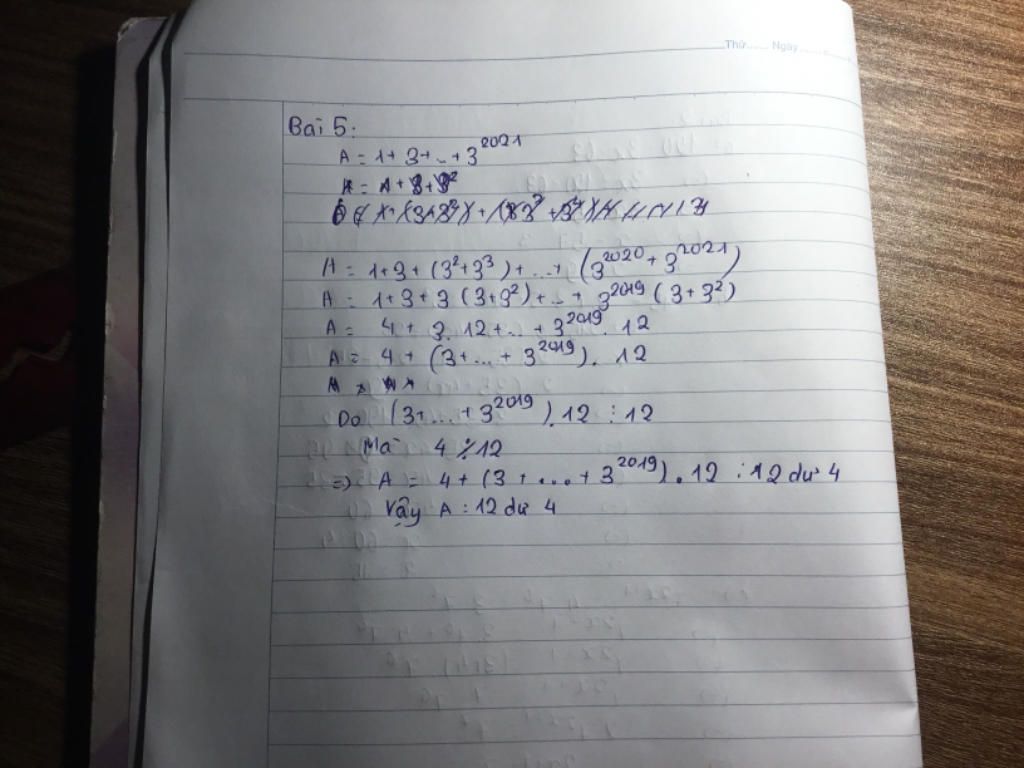 Thứ...... Ngày......
Bài 5:
A = 1+ 3+ .. + 3^2021
A = 1 + 3 + 3^2
A = 1+3 + (3^2+3^3) + ... + (3^2020 + 3^2021)
A = 1+3+3 (3+3^2) + .. + 3^2019 (3+3^2)
A = 4 + 3. 12 + .. + 3^2019. 12
A = 4 + (3+ ... + 3^2019). 12
Do (3+ ... + 3^2019).12 ⋮ 12
Mà 4 ⋮̸ 12
=> A = 4 + (3 + ... + 3^2019) . 12 : 12 dư 4
Vậy A : 12 dư 4